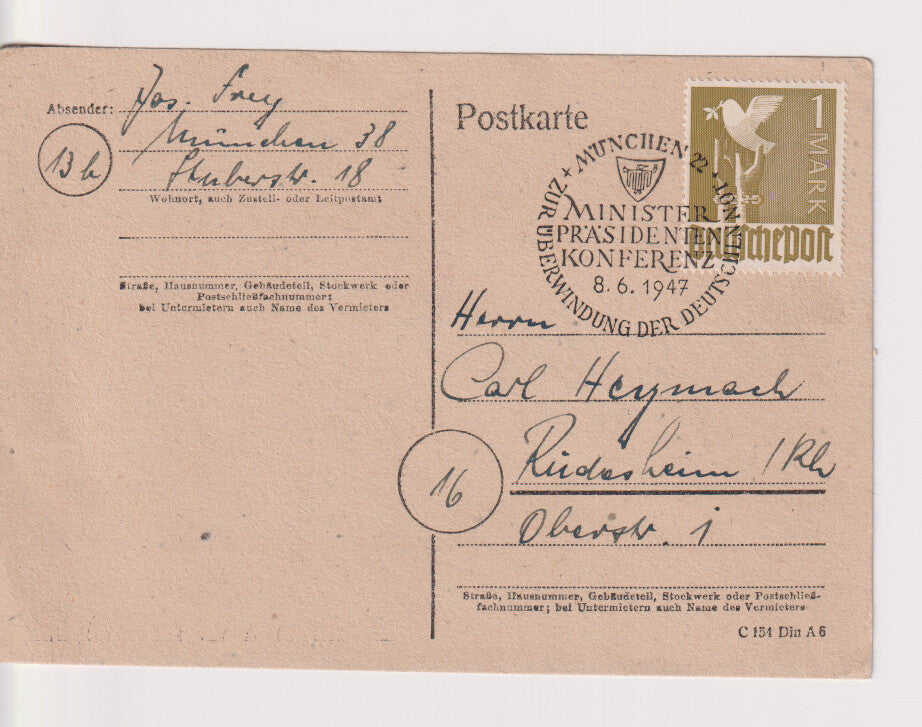 Absender: Jos. Frey
München 38
13b
Stuberstr. 18
Wohnort, auch Zustell- oder Leitpostamt
Straße, Hausnummer, Gebäudeteil, Stockwerk oder
Postschließfachnummer;
bei Untermietern auch Name des Vermieters
Postkarte
1 MARK
Deutsche Post
MÜNCHEN 22
MINISTER
PRÄSIDENTEN
KONFERENZ
8.6.1947
ZUR ÜBERWINDUNG DER DEUTSCHEN NOT
Herrn
Carl Heymach
16
Rüdesheim / Rh
Oberstr. 1
Straße, Hausnummer, Gebäudeteil, Stockwerk oder Postschließ-
fachnummer; bei Untermietern auch Name des Vermieters
C 154 Din A 6